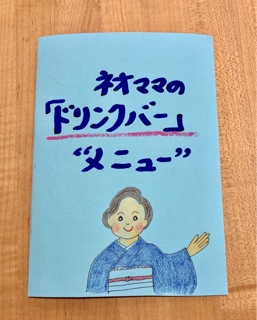 ネオママの
「ドリンクバー」
“メニュー”